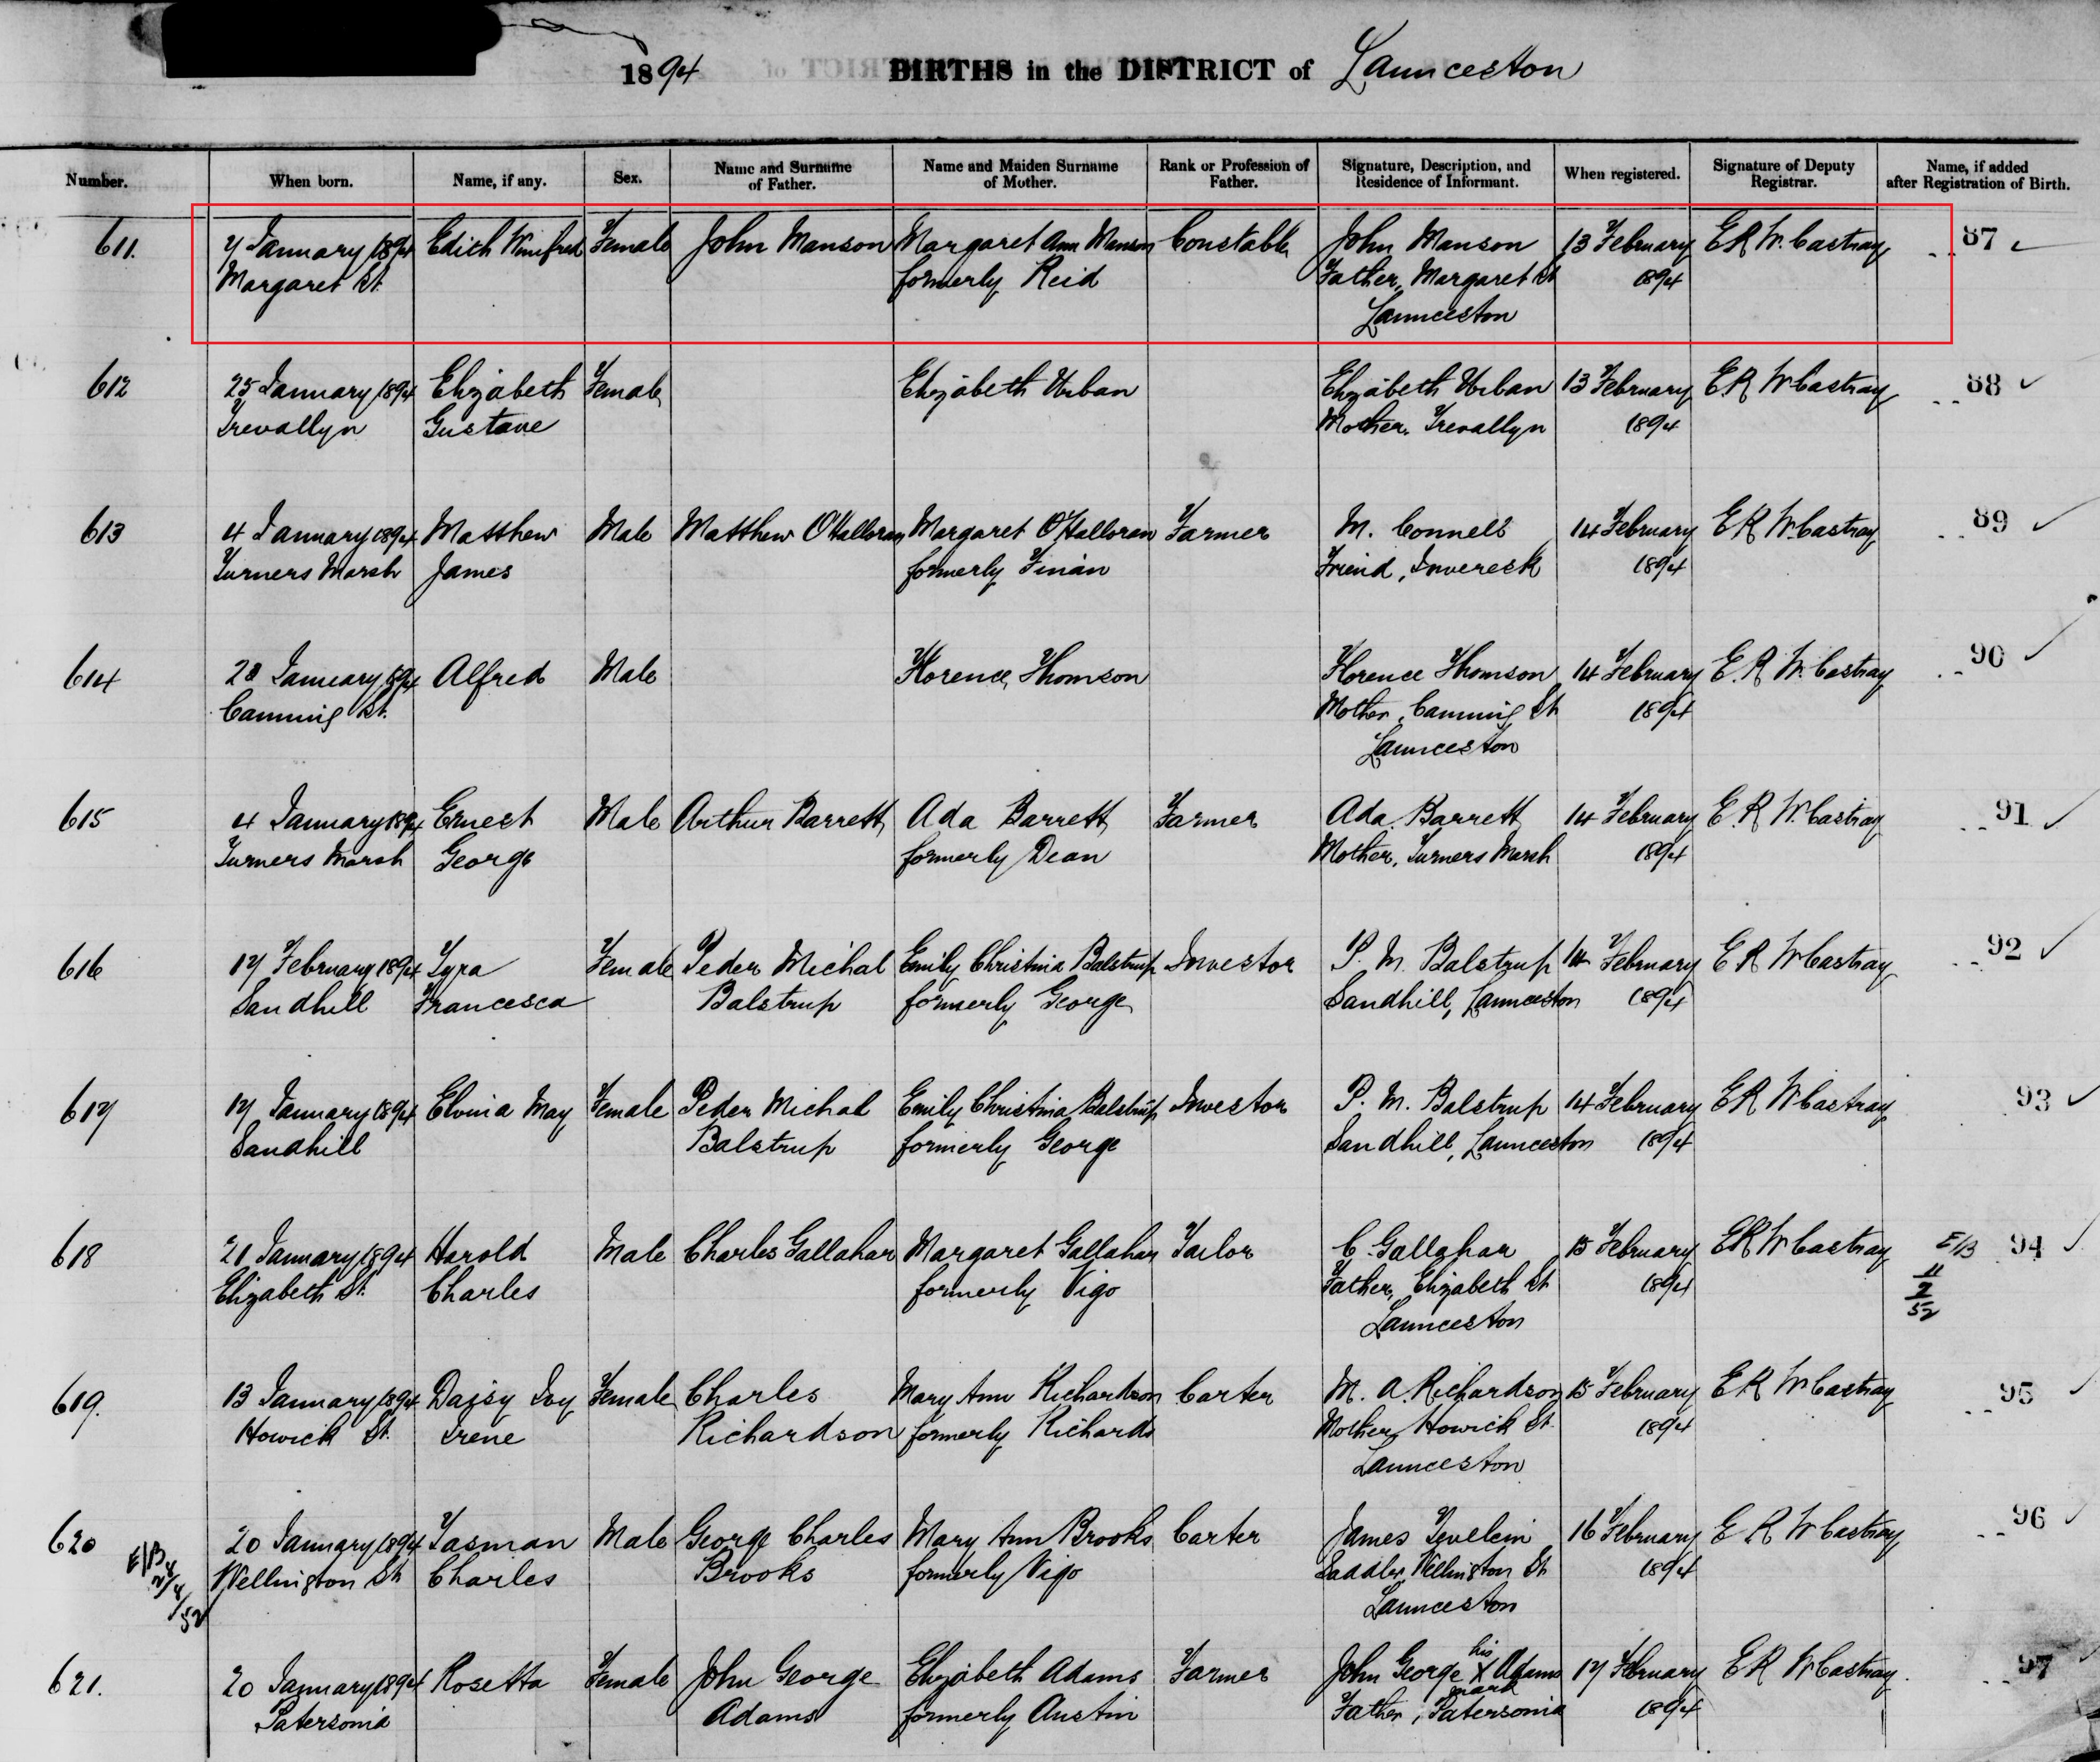 1894 BIRTHS in the DISTRICT of Launceston
Number. When born. Name, if any. Sex. Name and Surname of Father. Name and Maiden Surname of Mother. Rank or Profession of Father. Signature, Description, and Residence of Informant. When registered. Signature of Deputy Registrar. Name, if added after Registration of Birth.
611. 7 January 1894 Edith Winifred Female John Manson Margaret Ann Manson Constable John Manson 13 February E R W. Castray 87
Margaret St. formerly Reid Father, Margaret St 1894
Launceston
612 25 January 1894 Elizabeth Female Elizabeth Urban Elizabeth Urban 13 February E. R W Castray 88
Trevallyn Gustave Mother. Trevallyn 1894
613 4 January 1894 Matthew Male Matthew O'Halloran Margaret O'Halloran Farmer M. Connell 14 February E R W Castray 89
Turners Marsh James formerly Finan Friend, Invereck 1894
614 28 January 1894 Alfred Male Florence Thomson Florence Thomson 14 February E. R W. Castray 90
Canning St. Mother, Canning St 1894
Launceston
615 4 January 1894 Ernest Male Arthur Barrett Ada Barrett Farmer Ada Barrett 14 February E. R W. Castray 91
Turners Marsh George formerly Dean Mother, Turners Marsh 1894
616 17 February 1894 Tyra Female Peder Michal Emily Christina Balstrup Investor P. M. Balstrup 14 February E R W Castray 92
Sandhill Francesca Balstrup formerly George Sandhill, Launceston 1894
617 17 January 1894 Elvina May Female Peder Michal Emily Christina Balstrup Investor P. M. Balstrup 14 February E R W Castray 93
Sandhill Balstrup formerly George Sandhill, Launceston 1894
618 21 January 1894 Harold Male Charles Gallahar Margaret Gallahar Tailor C. Gallahar 15 February E R W Castray E/B 94
Elizabeth St. Charles formerly Vigo Father, Elizabeth St 1894 11
Launceston 2
52
619. 13 January 1894 Daisy Ivy Female Charles Mary Ann Richardson Carter M. A. Richardson 15 February E R W Castray 95
Howick St. Irene Richardson formerly Richards Mother, Howick St. 1894
Launceston
620 20 January 1894 Tasman Male George Charles Mary Ann Brooks Carter James 16 February E R W Castray 96
E/B Wellington St Charles Brooks formerly Vigo Saddler, Wellington St 1894
52 Launceston
his
621. 20 January 1894 Rosetta Female John George Elizabeth Adams Farmer John George X Adams 17 February E R W Castray 97
mark
Patersonia Adams formerly Austin Father, Patersonia 1894